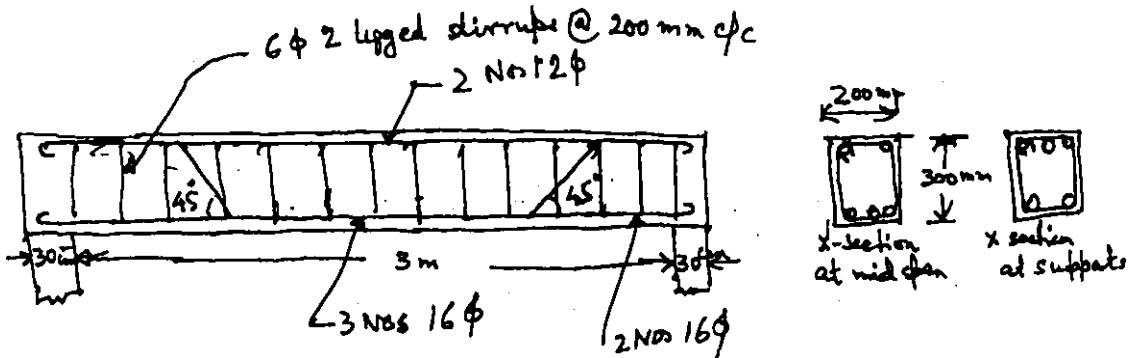 6ϕ 2 legged stirrups @ 200 mm c/c
2 Nos 12ϕ
200mm
45°
45°
300mm
x-section
at mid span
x section
at supports
30
3 m
30
3 Nos 16ϕ
2 Nos 16ϕ